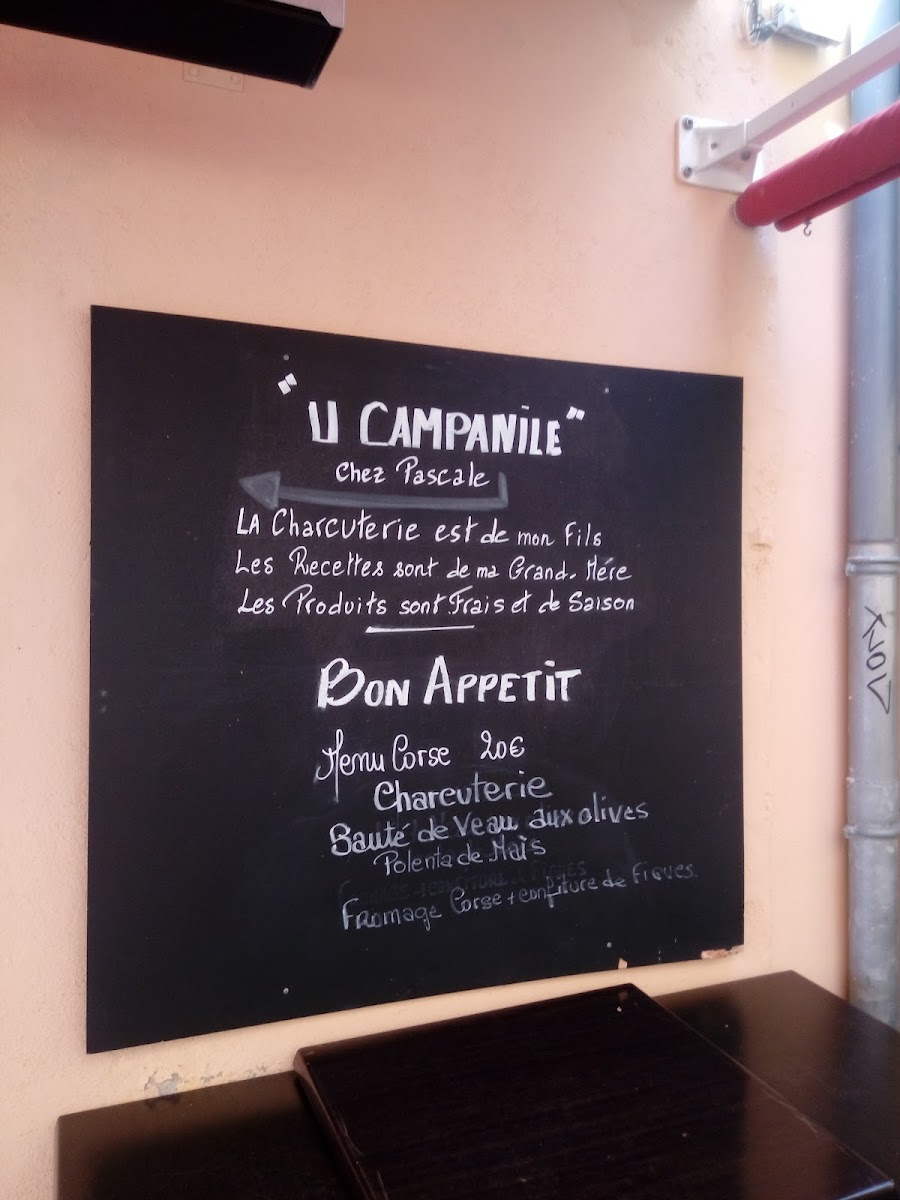 "U CAMPANILE"
chez Pascale
LA Charcuterie est de mon Fils
Les Recettes sont de ma Grand-Mére
Les Produits sont Frais et de Saison
BON APPETIT
Menu Corse 20€
Charcuterie
Sauté de Veau aux olives
Polenta de Maïs
Fromage Corse + confiture de Figues